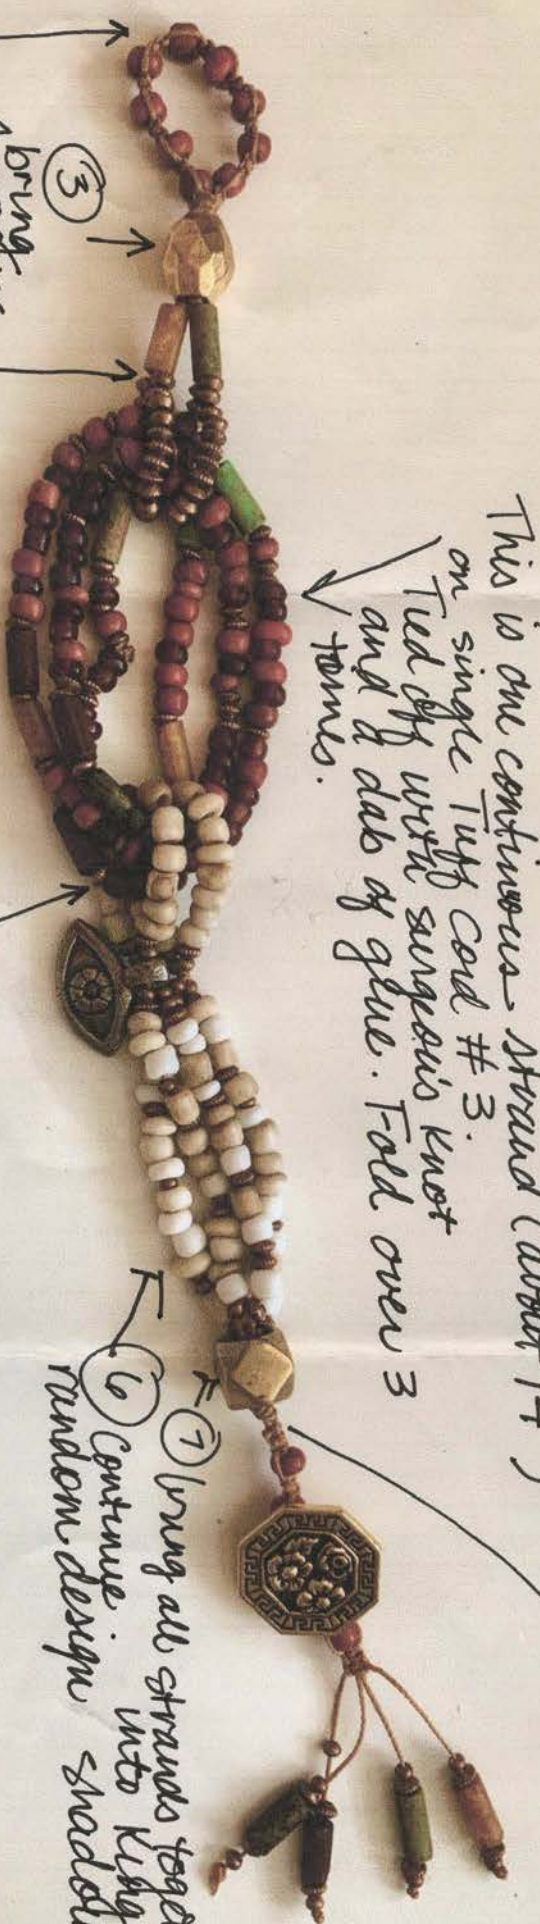 This is one continuous strand (about 14")
on single Tuff Cord #3.
Tied off with surgeon's knot
and a dab of glue. Fold over 3
times.
③
bring
⑦ bring all strands
into King
⑥ Continue
random design